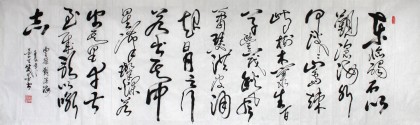 東臨碣石以
觀滄海水何
澹澹山島竦
峙樹木叢生百
草豐茂秋風
蕭瑟洪波涌
起日月之行
若出其中
星漢燦爛若
出其里幸甚
至哉歌以詠
志